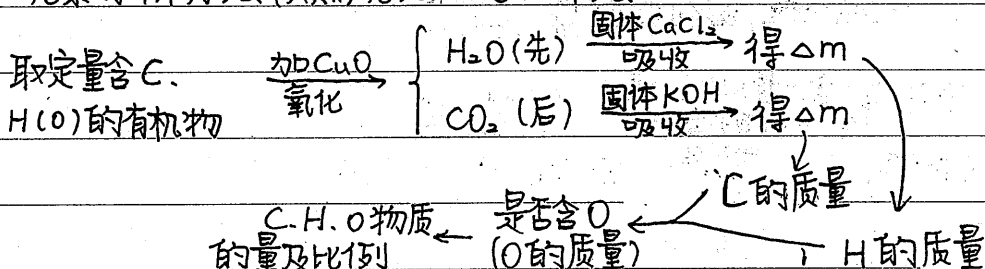 取定量含C、
H(O)的有机物
加CuO
氧化
H₂O(先) 固体CaCl₂ 吸收 得△m
CO₂(后) 固体KOH 吸收 得△m
C的质量
H的质量
是否含O
(O的质量)
C.H.O物质
的量及比例